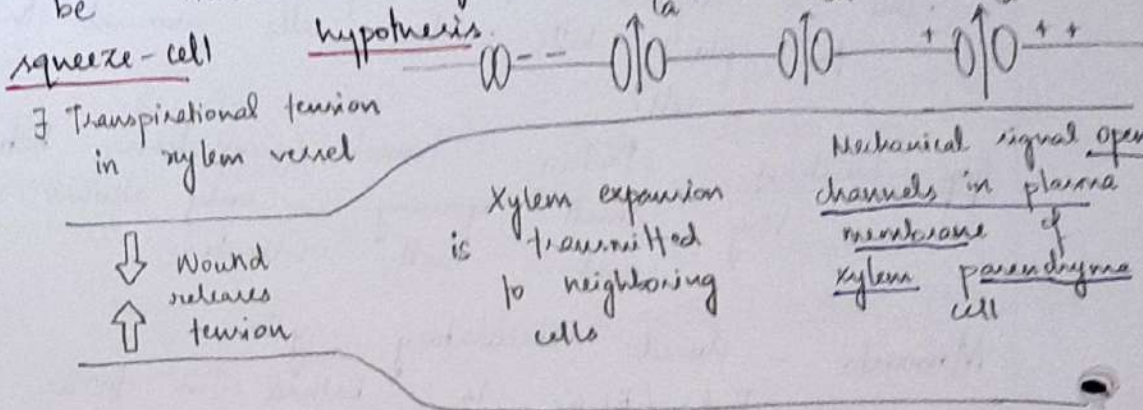 be
squeeze-cell hypothesis.
-- + ++
∃ Transpirational tension
in xylem vessel
Wound
releases
tension
Xylem expansion
is transmitted
to neighboring
cells
Mechanical signal open
channels in plasma
membrane of
xylem parenchyma
cell